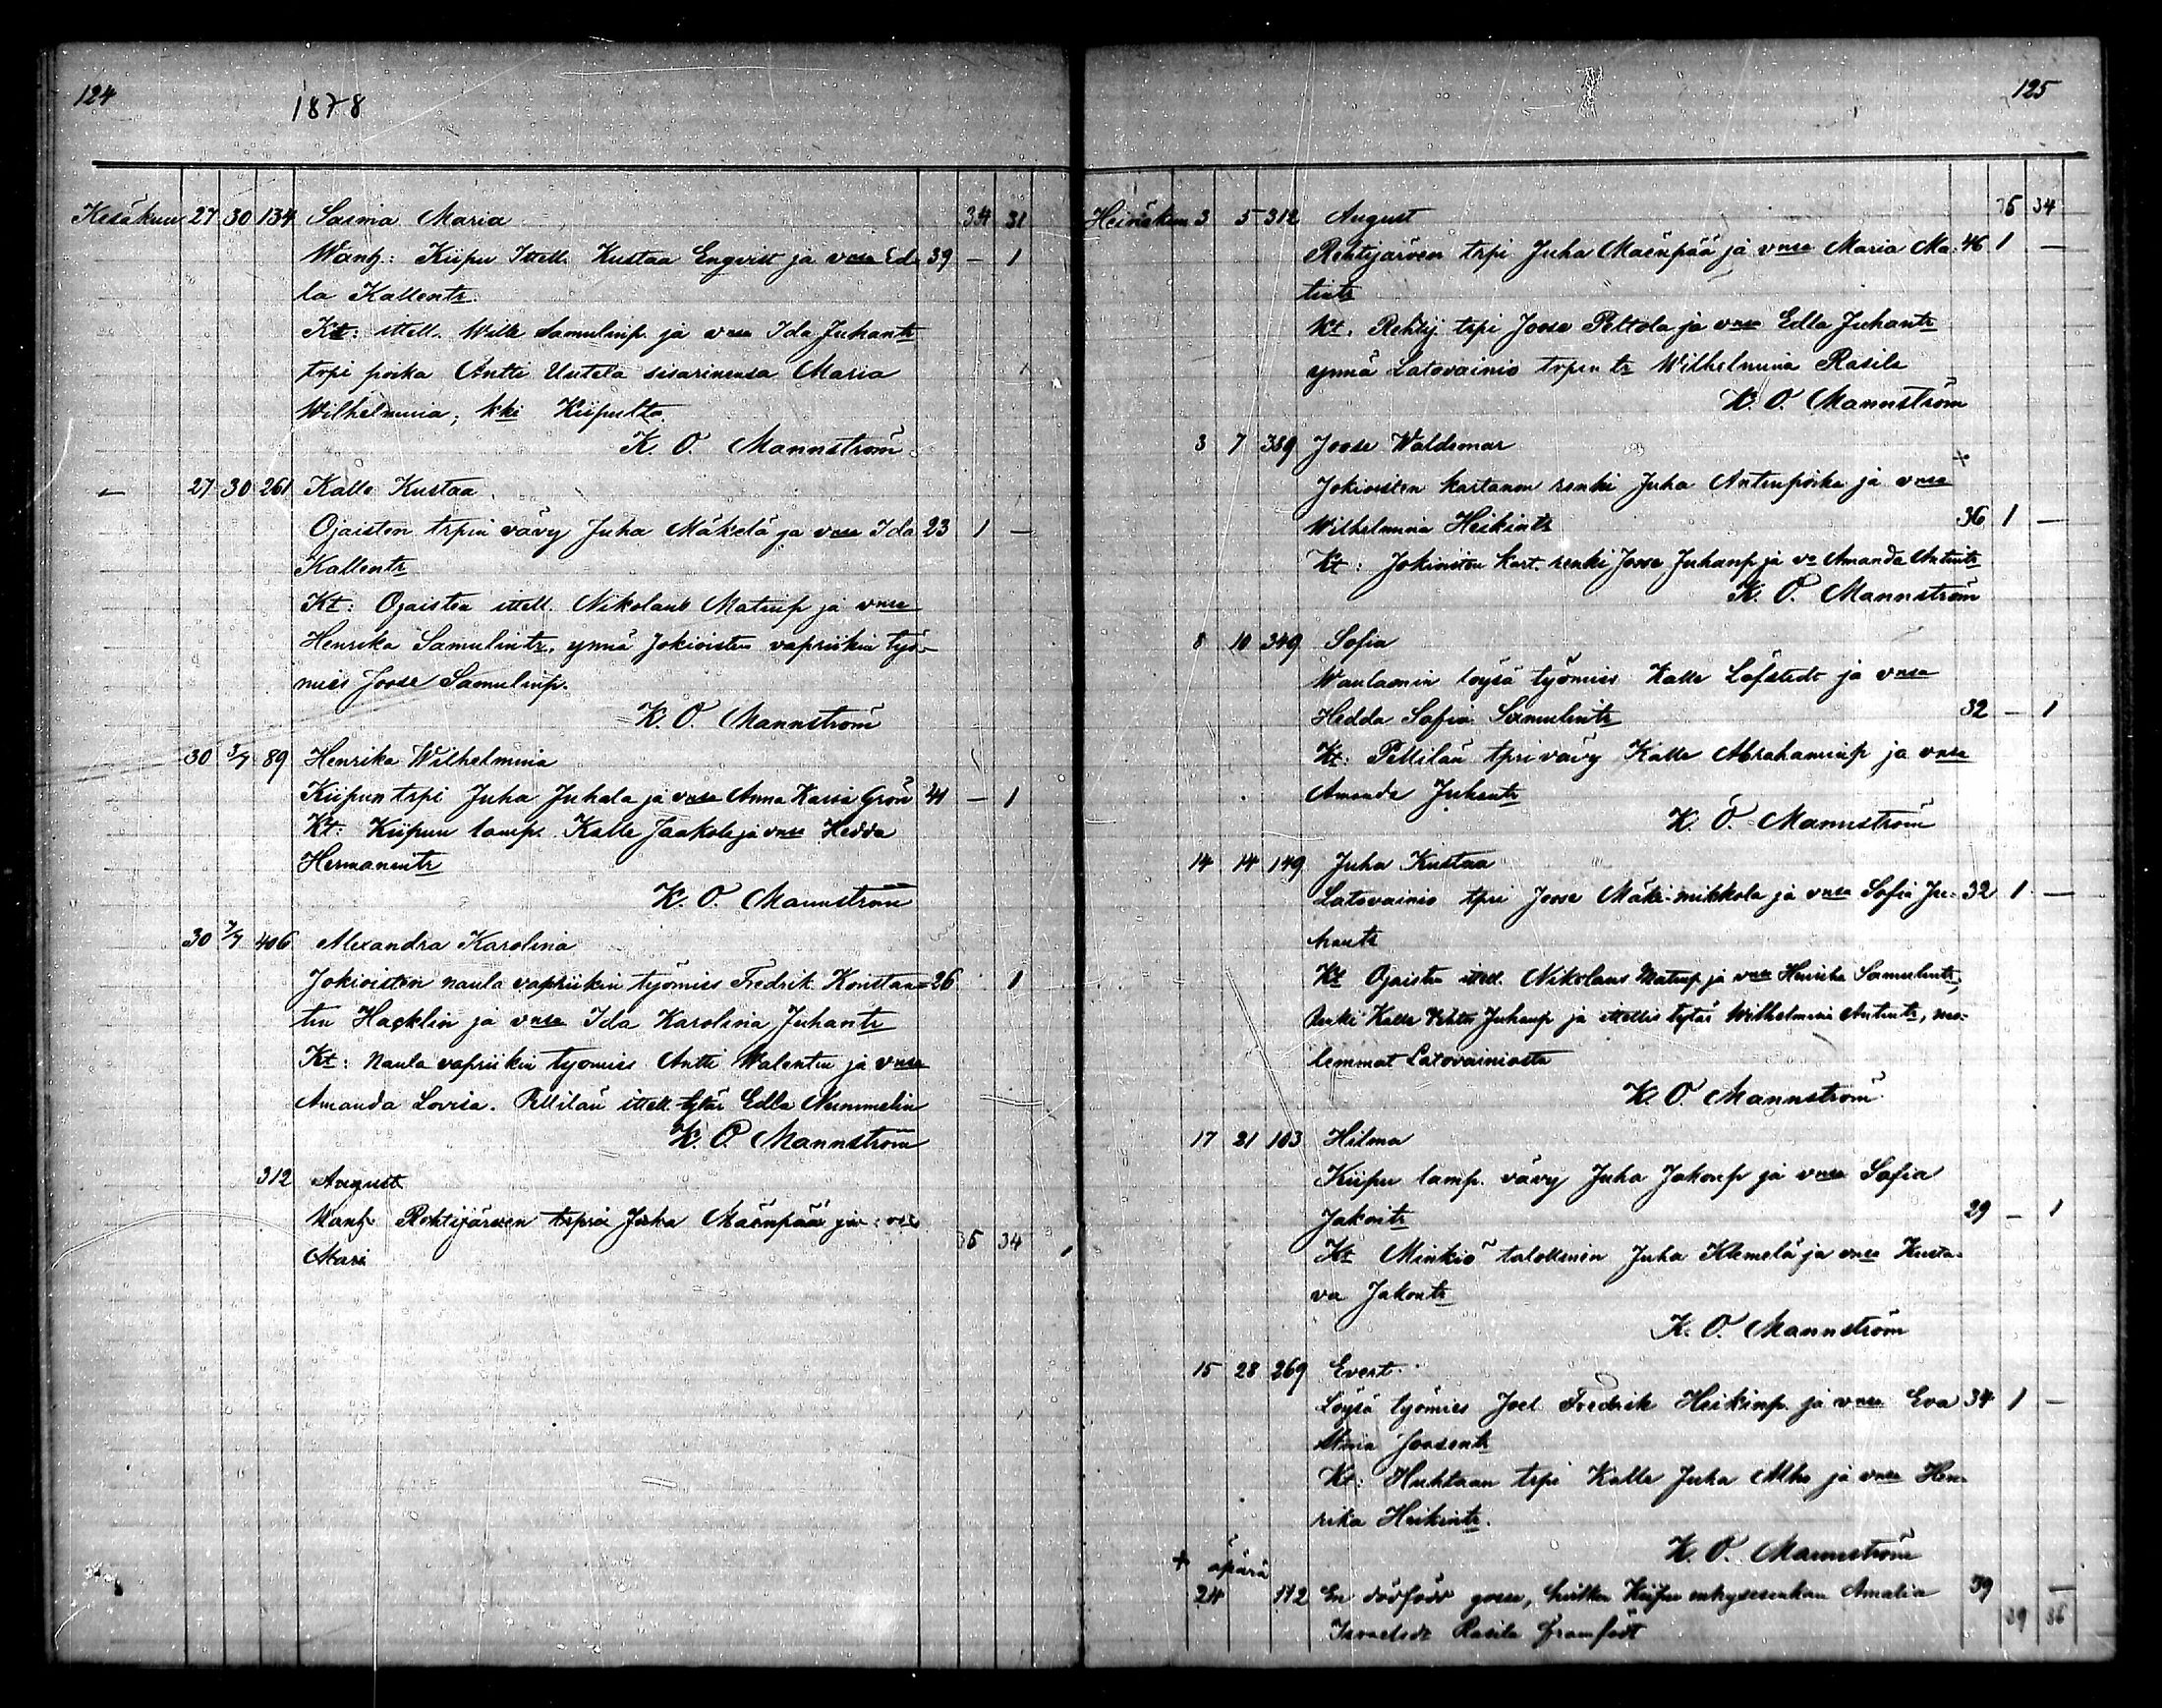 124
1878
Kesäkuu 27 30 134 Saima Maria 34 31
Wanh: Kiipu Itell. Kustaa Engvist ja vnsa Ed- 39 — 1
la Kallentr
Kt: ittell. Wille Samulinp. ja vnsa Ida Juhantr
trpi poika Antti Uutela sisarinensa Maria
Wilhelmina, kki Kiipulta.
K. O. Mannström.
— 27 30 261 Kalle Kustaa
Ojaisten trpin vävy Juha Mäkelä ja vnsa Ida 23 1 —
Kallentr
Kt: Ojaisten ittell. Nikolaus Matinp ja vnsa
Henrika Samulintr, ynnä Jokioisten vapriikin työ-
mies Joose Samulinp.
K. O. Mannström
30 3/7 89 Henrika Wilhelmina
Kiipun trpi Juha Juhala ja vnsa Anna Karia Grön 41 — 1
Kt: Kiipun lamp. Kalle Jaakola ja vnsa Hedda
Hermanintr
K. O. Mannström
30 7/7 406 Alexandra Karolina
Jokioisten naula vapriikin työmies Fredrik Konstan- 26 1
tin Hacklin ja vnsa Ida Karolina Juhantr
Kt: Naula vapriikin työmies Antti Walentin ja vnsa
Amanda Lovisa. Pellilän ittell. tytär Edla Nummelin
K. O. Mannström
312 August
Wanh. Rehtijärven trpi Juha Mäenpää ja vns
Mari
35 34 1
125
Heinäkuu 3 5 312 August 35 34
Rehtijärven trpi Juha Mäenpää ja vnsa Maria Ma- 46 1 —
tintr
Kt. Rehtij. trpi Joose Peltola ja vnsa Edla Juhantr
ynnä Latovainio trpin tr Wilhelmina Rasila
K. O. Mannström
3 7 389 Joose Waldemar
Jokioisten kartanon renki Juha Antinpoika ja vnsa
Wilhelmina Heikintr 36 1 —
Kt: Jokioisten kart. renki Joose Juhanp ja v. Amanda Antintr
K. O. Mannström
8 10 349 Sofia
Waulamin löysä työmies Kalle Löfstedt ja vnsa
Hedda Sofia Samulintr 32 — 1
Kt: Pellilän tpri vävy Kalle Abrahaminp ja vnsa
Amanda Juhantr
K. O. Mannström
14 14 149 Juha Kustaa
Latovainio tpri Joose Mäki-mikkola ja vnsa Sofia Ju- 32 1 —
hantr
Kt Ojaisten ittell. Nikolaus Matinp ja vnsa Henrika Samulintr,
renki Kalle Juhanp ja ittellis tytär Wilhelmina Antintr, mo-
lemmat Latovainiosta
K. O. Mannström
17 21 103 Hilma
Kiipu lamp. vävy Juha Jakonp ja vnsa Sofia
Jakontr 29 — 1
Kt Minkiö talollinen Juha Klemelä ja vnsa Kusta-
va Jakontr
K. O. Mannström
15 28 269 Evert
Löysä työmies Joel Fredrik Heikinp. ja vnsa Eva 34 1 —
Stina Joosentr
Kt: Huhtaan trpi Kalle Juha Alho ja vnsa Hen-
rika Heikintr.
K. O. Mannström
+ äpärä
24 112 En dödfödd gosse, hvilken Kiipu enhyseenkan Amalia 39 —
Israelsdr Rasila framfödt
39 36